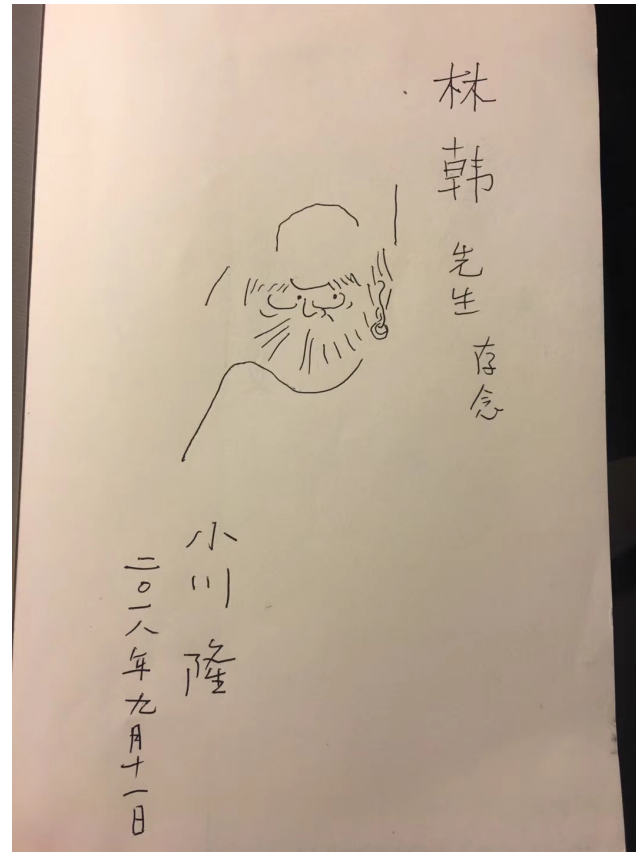 林韩先生存念
小川隆
二〇一八年九月十一日